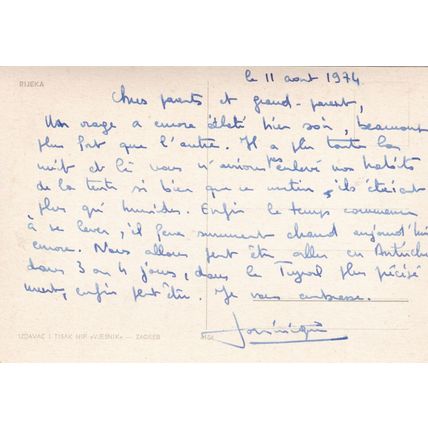 le 11 aout 1974.
RIJEKA
Chers parents et grand-parent,
Un orage a encore éclaté hier soir, beaucoup
plus fort que l'autre. Il a plu toute la
nuit et là nous n'avions pas enlevé nos habits
de la tente si bien que ce matin, ils étaient
plus qu'humides. Enfin le temps commence
à se lever, il fera surement chaud aujourd'hui
encore. Nous allons peut être aller en Autriche
dans 3 ou 4 jours, dans le Tyrol plus précisé
ment, enfin peut être. Je vous embrasse.
Dominique
IZDAVAČ I TISAK NIP «VJESNIK» — ZAGREB